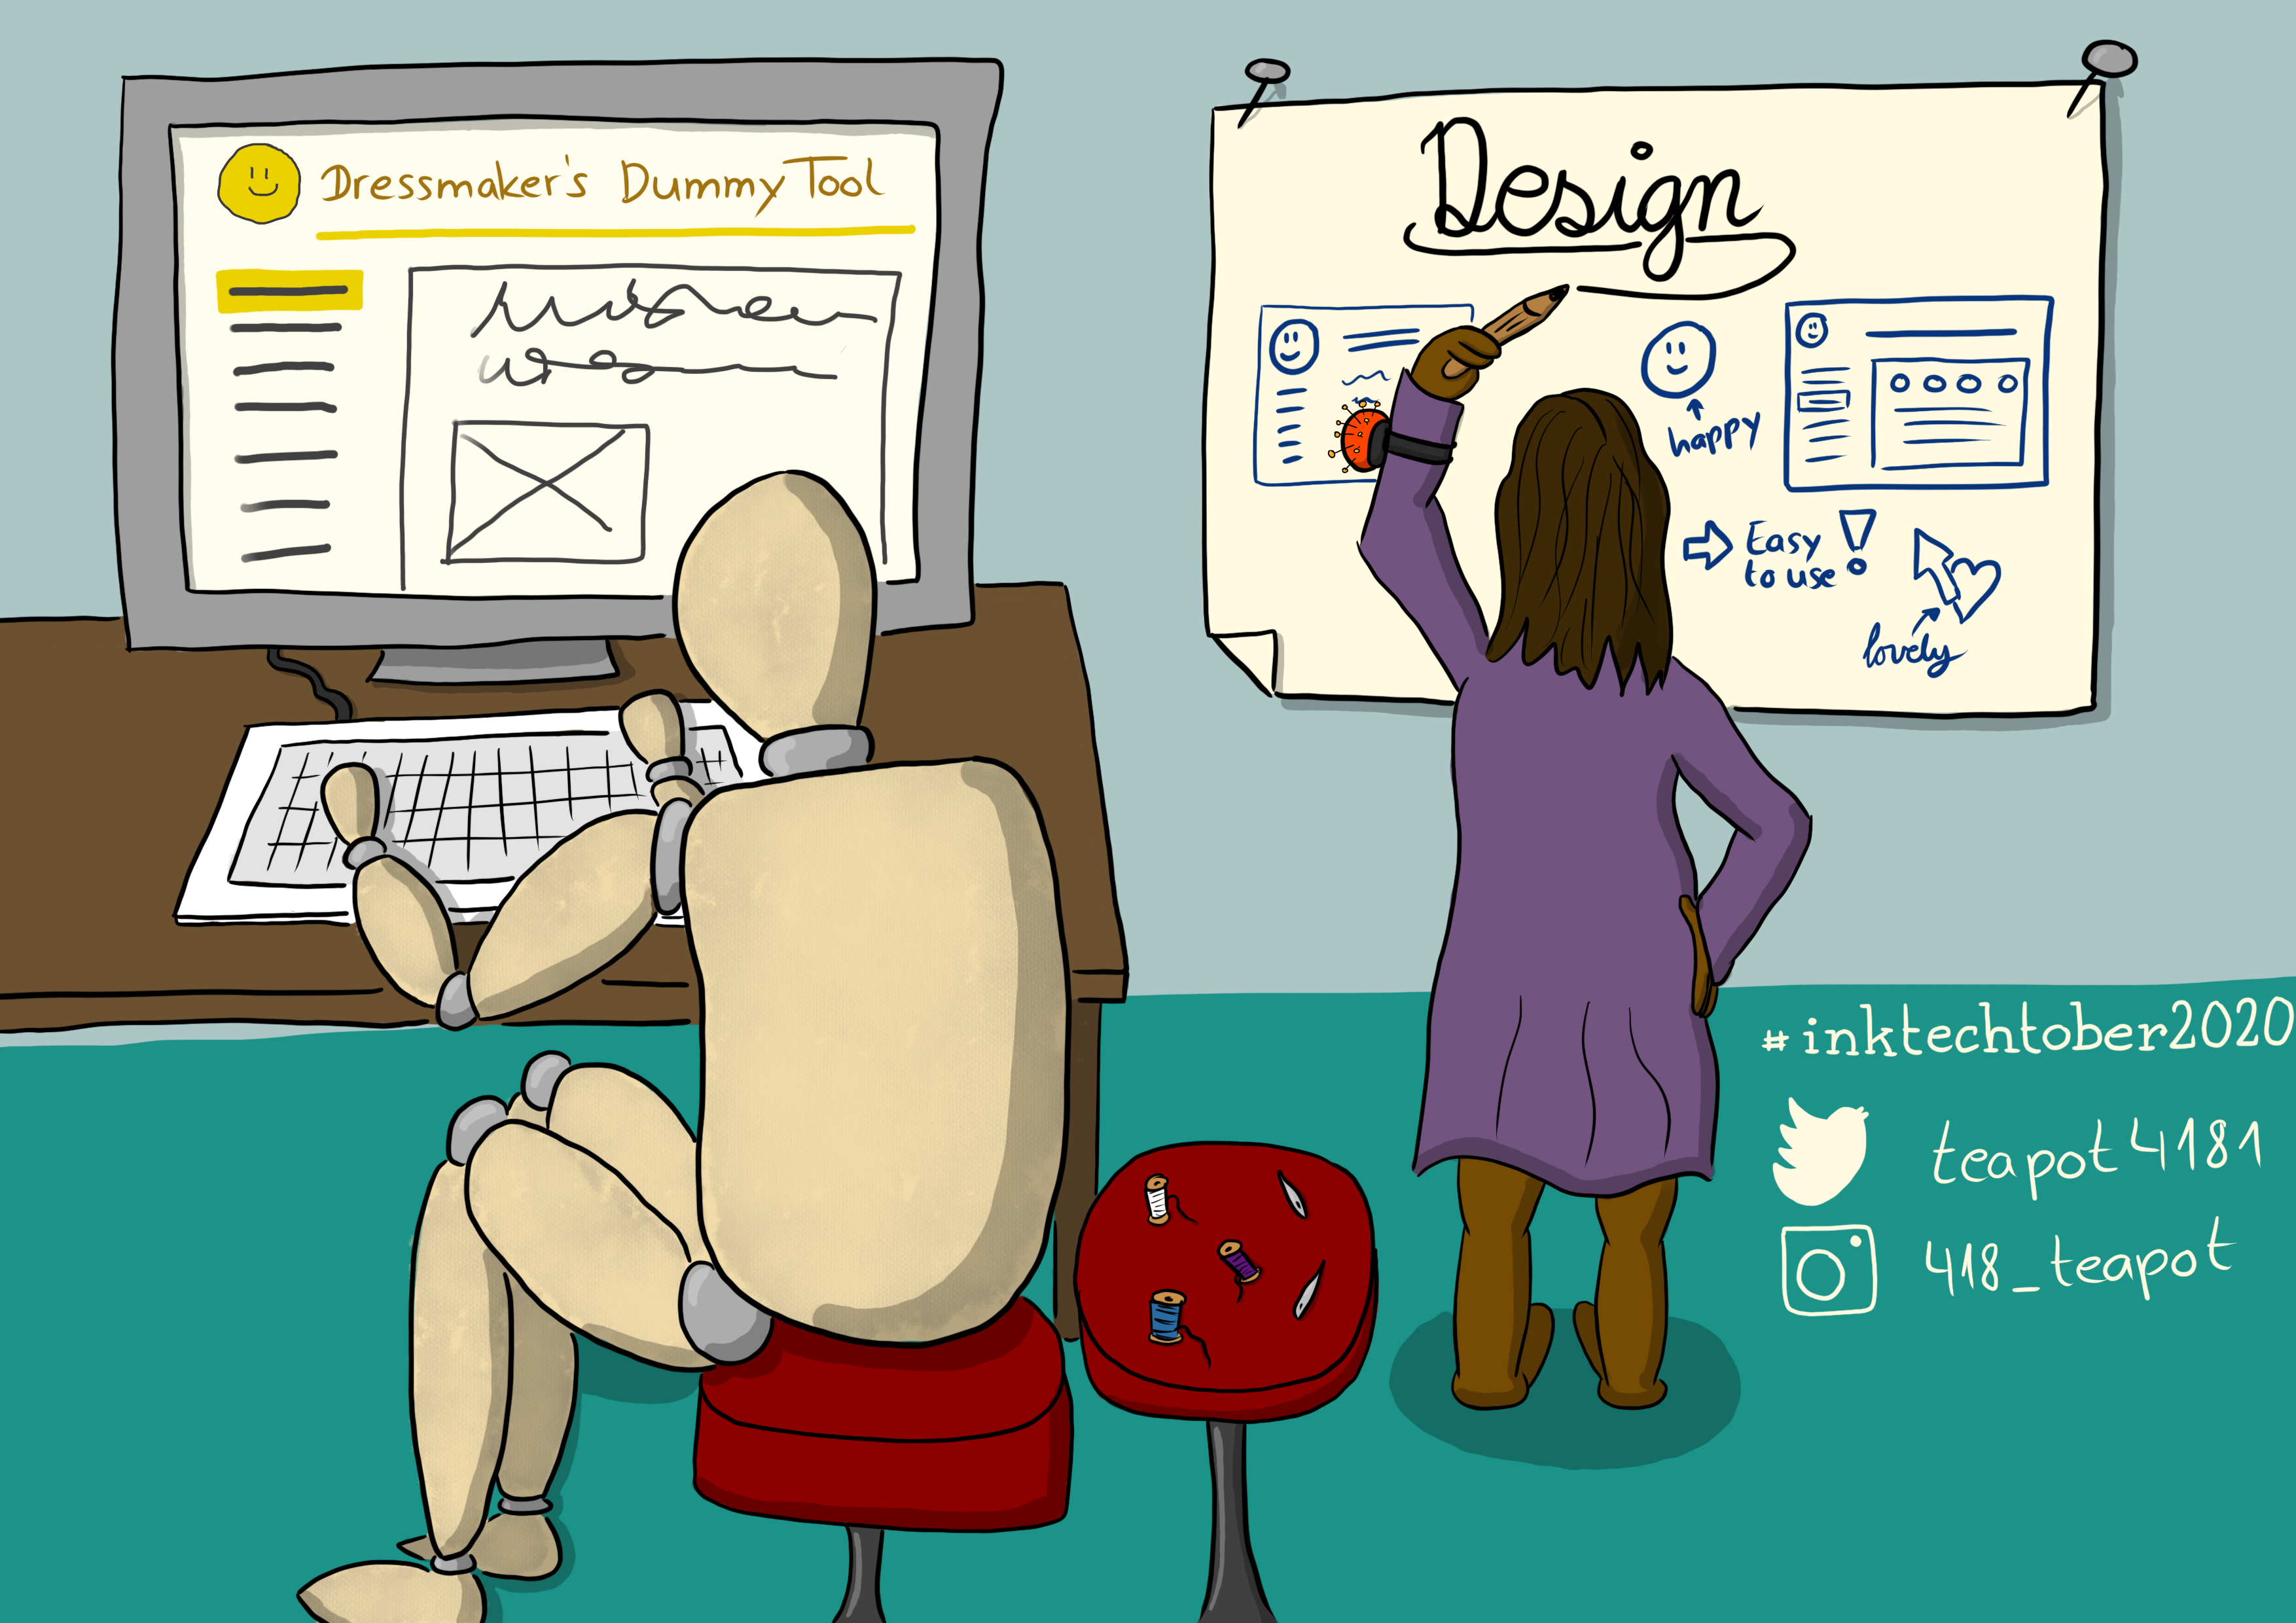 Dressmaker's Dummy Tool
Design
happy
Easy
to use!
lovely
#inktechtober2020
teapot4181
418_teapot